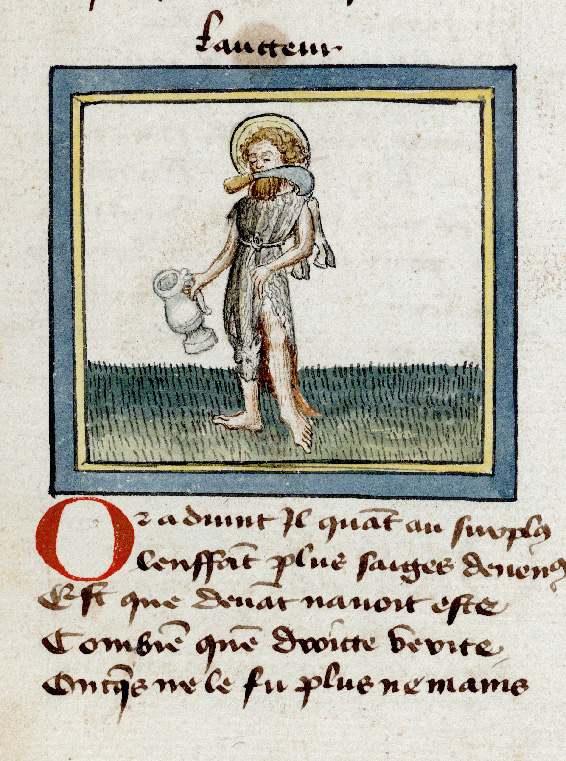 Laucteur
Or aduint Il quāt au surplus
lenffāt plus saiges deuenus
Est que deuāt nauoit este
Combiē quē droicte verite
Oncq̄s ne le fu plus ne mains